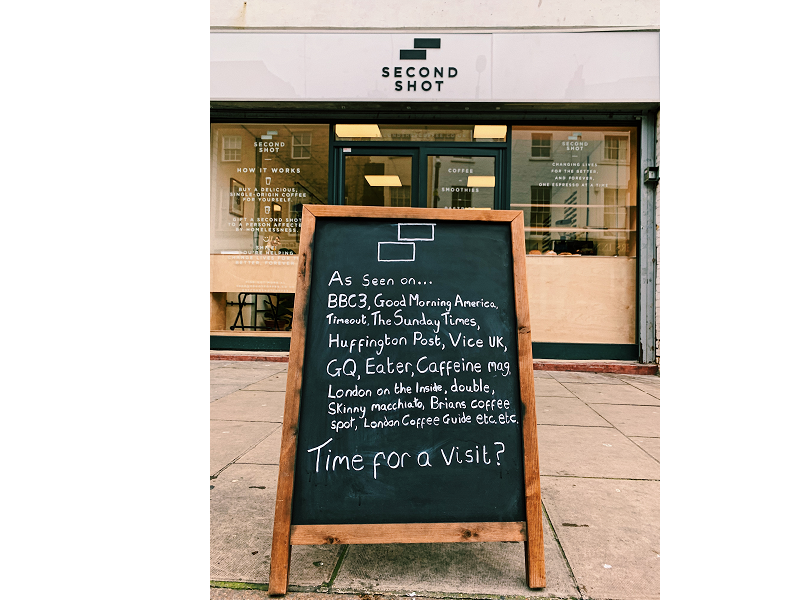 SECOND
SHOT
SECOND
SHOT
HOW IT WORKS
BUY A DELICIOUS,
SINGLE-ORIGIN COFFEE
FOR YOURSELF.
GIFT A SECOND SHOT
TO A PERSON AFFECTED
BY HOMELESSNESS.
COFFEE
SMOOTHIES
SECOND
SHOT
CHANGING LIVES
FOR THE BETTER,
AND FOREVER,
ONE ESPRESSO AT A TIME
As seen on...
BBC3, Good Morning America,
Timeout, The Sunday Times,
Huffington Post, Vice UK,
GQ, Eater, Caffeine mag,
London on the Inside, double,
Skinny macchiato, Brians coffee
spot, London Coffee Guide etc.etc.
Time for a visit?